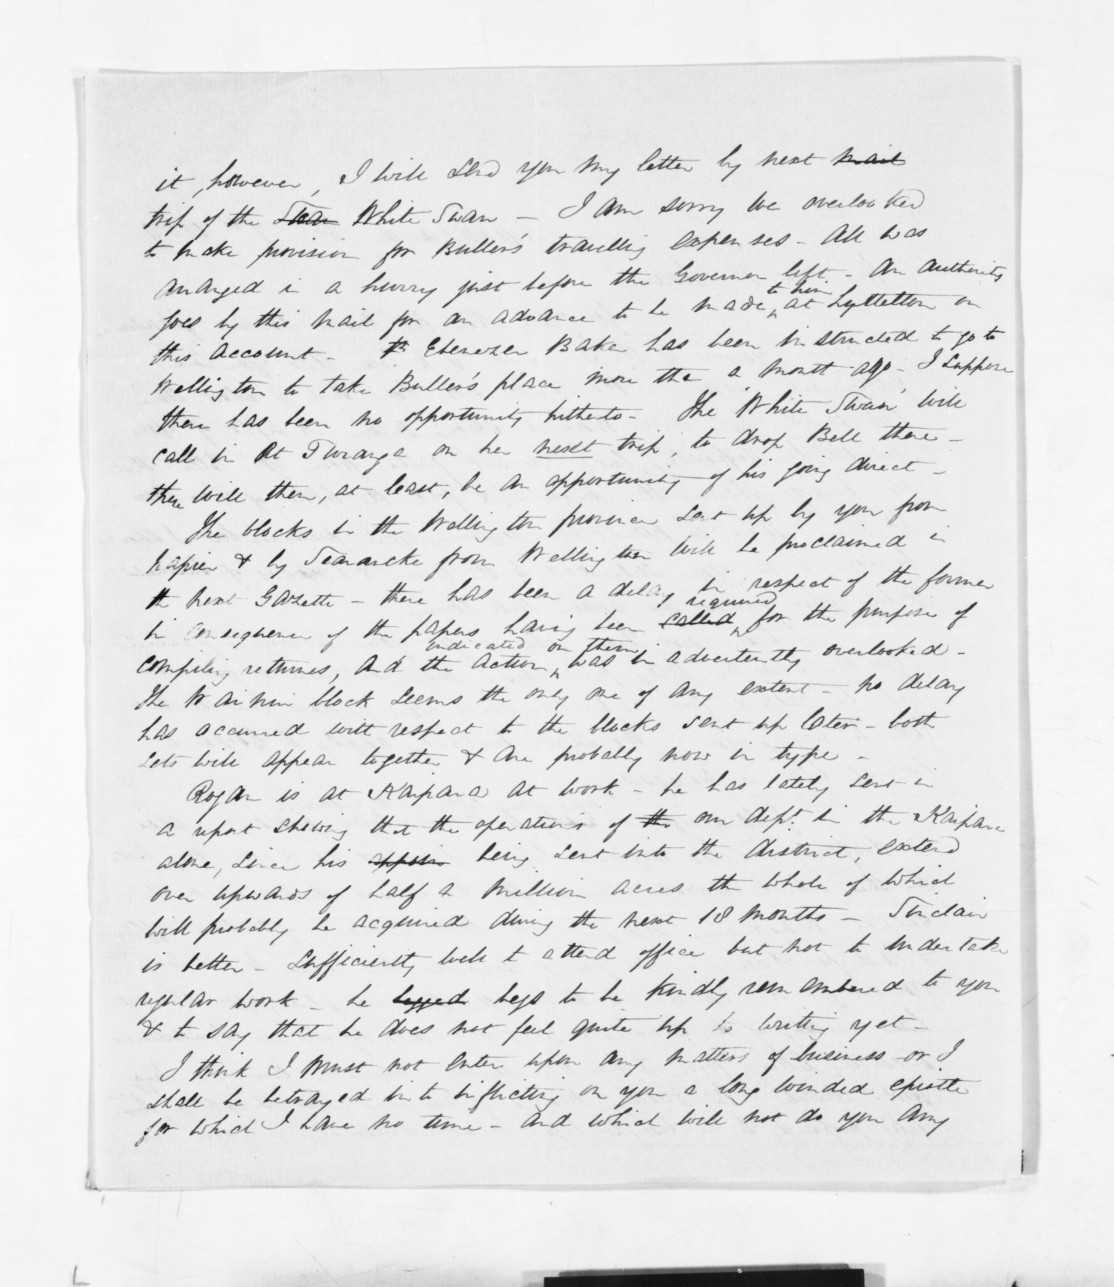 it, however, I will send you my letter by next mail
trip of the Swan White Swan - I am sorry we overlooked
to make provision for Buller's travelling expenses - All was
arranged in a hurry just before the Governor left - An authority
to him
goes by this mail for an advance to be made at Lyttelton on
this account - Ebenezer Baker has been instructed to go to
Wellington to take Buller's place more than a month ago - I suppose
there has been no opportunity hitherto - The 'White Swan' will
call in at Turanga on her next trip, to drop Bell there -
there will then, at least, be an opportunity of his going direct -
The blocks in the Wellington province sent up by you from
Napier & by Searancke from Wellington will be proclaimed in
the next Gazette - there has been a delay in respect of the former
required
in consequence of the papers having been called for the purpose of
indicated on them
compiling returns, and the action was inadvertently overlooked -
The block seems the only one of any extent - no delay
has occurred with respect to the blocks sent up later - both
sets will appear together & are probably now in type -
Rogan is at Kaipara at work - he has lately sent in
a report shewing that the operations of the our dept. in the Kaipara
alone, since his being sent into the district, extend
over upwards of half a million acres the whole of which
will probably be acquired during the next 18 months - Sinclair
is better - sufficiently well to attend office but not to undertake
regular work - he begged begs to be kindly remembered to you
& to say that he does not feel quite up to writing yet -
I think I must not enter upon any matters of business - or I
shall be betrayed into inflicting on you a long winded epistle
for which I have no time - and which will not do you any